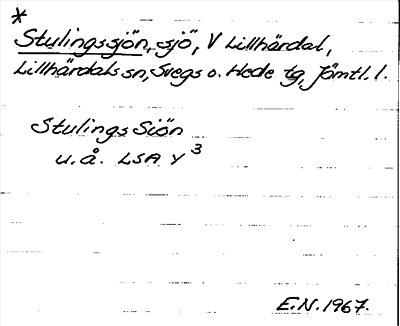 *
Stulingssjön, sjö, V Lillhärdal,
Lillhärdals sn, Svegs o. Hede tg, Jämtl. l.
Stulings Siön
u.å. LSA Y³
E.N. 1967.